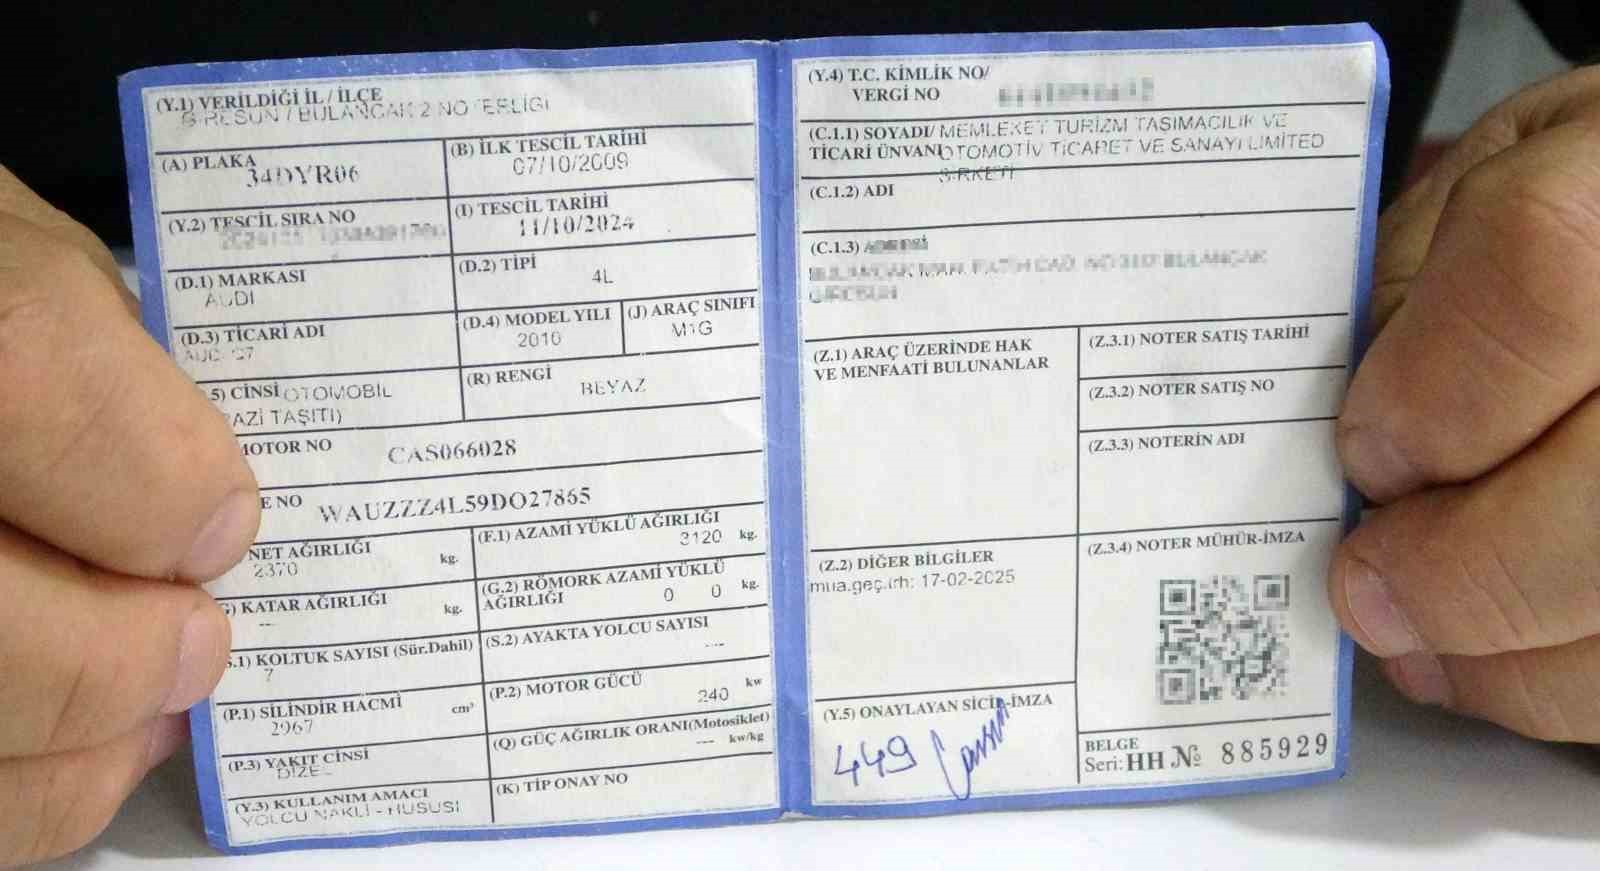 (Y.1) VERİLDİĞİ İL / İLÇE
GİRESUN / BULANCAK 2 NOTERLİĞİ
(A) PLAKA
34DYR06
(B) İLK TESCİL TARİHİ
07/10/2009
(Y.2) TESCİL SIRA NO
(I) TESCİL TARİHİ
11/10/2024
(D.1) MARKASI
AUDI
(D.2) TİPİ
4L
(D.3) TİCARİ ADI
(D.4) MODEL YILI
2010
(J) ARAÇ SINIFI
M1G
5) CİNSİ OTOMOBİL
AZİ TAŞITI)
(R) RENGİ
BEYAZ
MOTOR NO
CAS066028
E NO
WAUZZZ4L59DO27865
NET AĞIRLIĞI
2370 kg.
(F.1) AZAMİ YÜKLÜ AĞIRLIĞI
3120 kg.
G) KATAR AĞIRLIĞI
--- kg.
(G.2) RÖMORK AZAMİ YÜKLÜ
AĞIRLIĞI 0 0 kg.
S.1) KOLTUK SAYISI (Sür.Dahil)
7
(S.2) AYAKTA YOLCU SAYISI
---
(P.1) SİLİNDİR HACMİ
2967 cm³
(P.2) MOTOR GÜCÜ
240 kw
(P.3) YAKIT CİNSİ
DİZEL
(Q) GÜÇ AĞIRLIK ORANI(Motosiklet)
--- kw/kg
(Y.3) KULLANIM AMACI
YOLCU NAKLİ - HUSUSİ
(K) TİP ONAY NO
(Y.4) T.C. KİMLİK NO/
VERGİ NO
(C.1.1) SOYADI/ MEMLEKET TURİZM TAŞIMACILIK VE
TİCARİ ÜNVANI OTOMOTİV TİCARET VE SANAYİ LİMİTED
ŞİRKETİ
(C.1.2) ADI
(C.1.3) ADRESİ
(Z.1) ARAÇ ÜZERİNDE HAK
VE MENFAATİ BULUNANLAR
(Z.3.1) NOTER SATIŞ TARİHİ
(Z.3.2) NOTER SATIŞ NO
(Z.3.3) NOTERİN ADI
(Z.2) DİĞER BİLGİLER
mua.geç.trh: 17-02-2025
(Z.3.4) NOTER MÜHÜR-İMZA
(Y.5) ONAYLAYAN SİCİL-İMZA
449
BELGE
Seri: HH № 885929